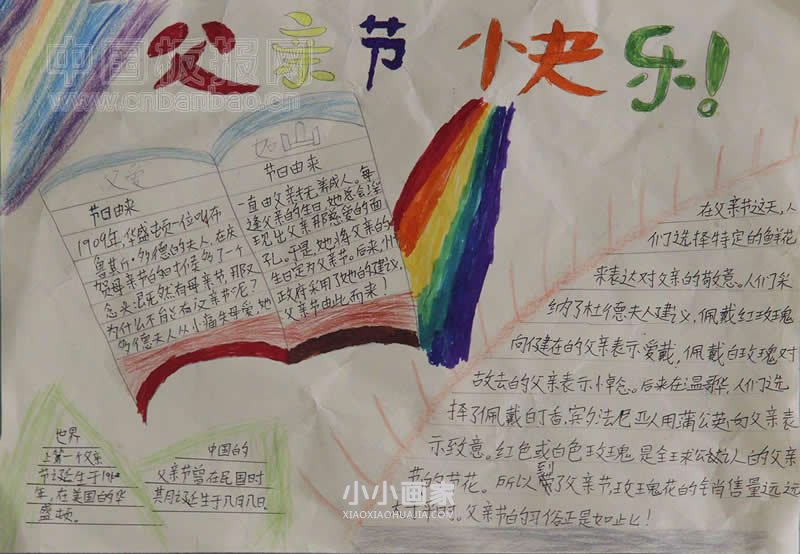 父亲节快乐!
中国板报网
www.cnbanbao.cn
父爱
节日由来
1909年,华盛顿一位叫布
鲁斯·多德的夫人,在庆
贺母亲节的时候多了一个
念头:既然有母亲节,那又
为什么不能有父亲节呢?
多德夫人从小痛失母爱,她
如山
节日由来
一直由父亲抚养成人。每
逢父亲的生日,她总会浮
现出父亲那慈爱的面
孔。于是,她将父亲的
生日定为父亲节。后来,州
政府采用了她的建议,
父亲节由此而来!
在父亲节这天,人
们选择特定的鲜花
来表达对父亲的敬意。人们采
纳了杜德夫人建议,佩戴红玫瑰
向健在的父亲表示爱戴,佩戴白玫瑰对
故去的父亲表示悼念。后来在温哥华,人们选
择了佩戴白丁香,宾夕法尼亚人用蒲公英向父亲表
示致意。红色或白色玫瑰是全球公认的父亲
节的节花。所以到了父亲节,玫瑰花的销售量远远
父亲节的习俗正是如此!
世界
上第一个父亲
节诞生于19
年,在美国的华
盛顿。
中国的
父亲节曾在民国时
期诞生于八月八日
小小画家
XIAOXIAOHUAJIA.COM